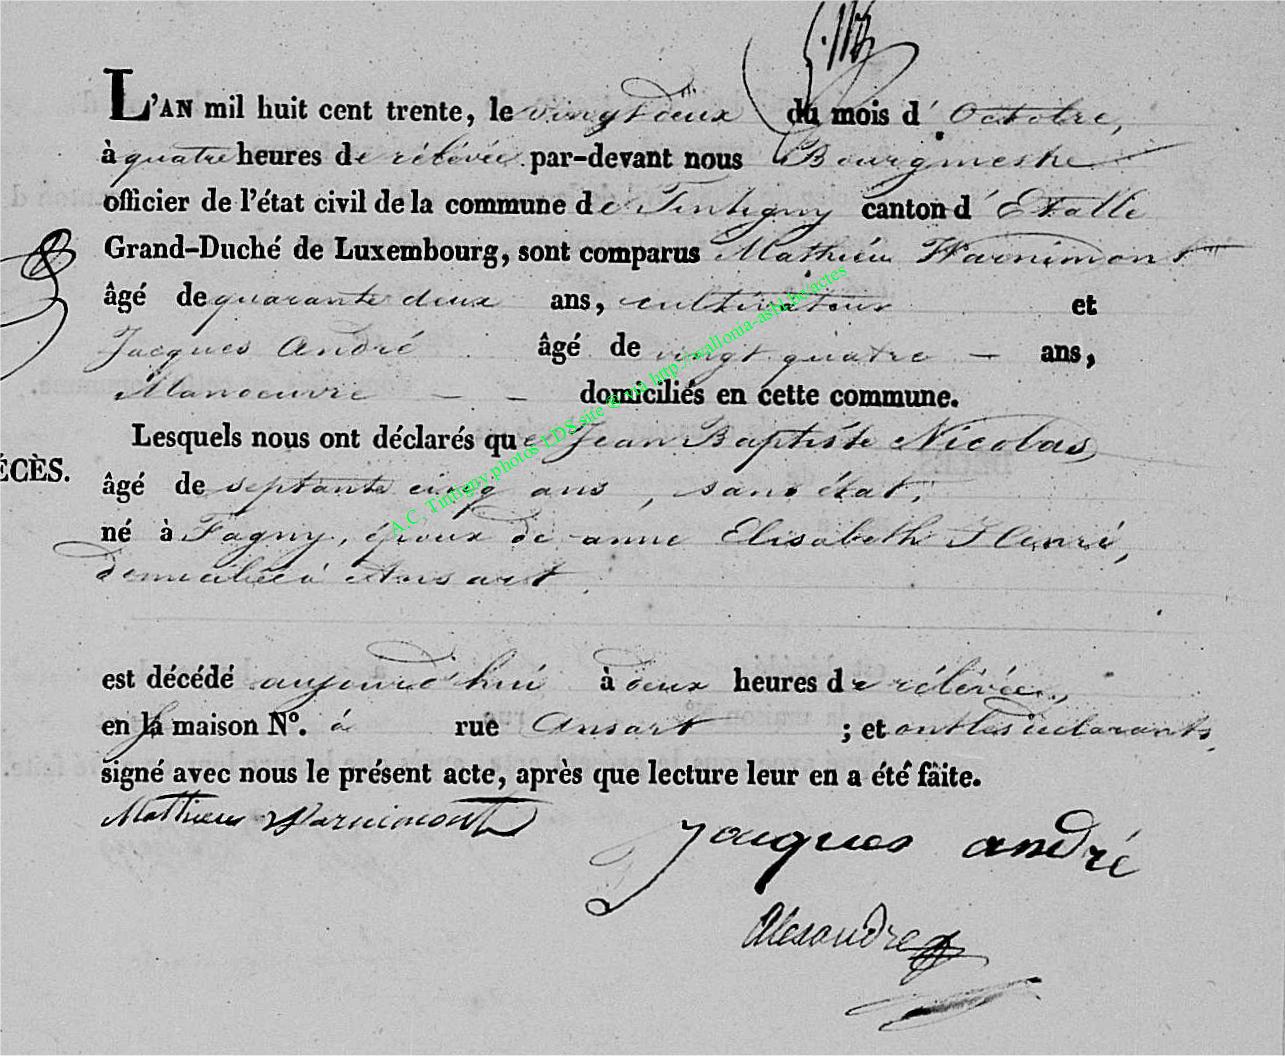 L'AN mil huit cent trente, le vingt deux du mois d'Octobre,
à quatre heures de rélévée par-devant nous Bourgmestre
officier de l'état civil de la commune de Tintigny canton d'Etalle
Grand-Duché de Luxembourg, sont comparus Mathieu Warnimont
âgé de quarante deux ans, cultivateur et
Jacques André âgé de vingt quatre — ans,
Manoeuvre — — domiciliés en cette commune.
Lesquels nous ont déclarés que Jean Baptiste Nicolas
ÉCÈS.
âgé de septante cinq ans, sans état,
né à Fagny, époux de anne Elisabeth Henri,
domicilié à Ansart.
est décédé aujourd'hui à deux heures de rélévée,
en la maison N°. à rue Ansart ; et ont les déclarants,
signé avec nous le présent acte, après que lecture leur en a été fâite.
Mathieu Warnimont
Jacques andré
Alexandre
A.C. Tintigny photos LDS site © via http://wallonia-asbl.be/actes